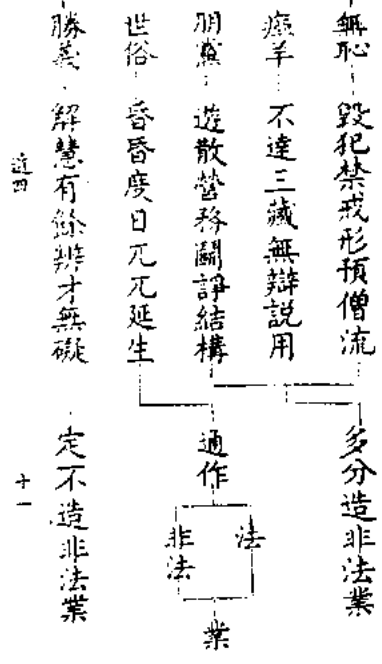 無恥 毀犯禁戒形預僧流
瘂羊 不達三藏無辯說用
朋黨 遊散營務鬭諍結構
世俗 昏昏度日兀兀延生
勝義 解慧有餘辨才無礙
多分造非法業
通作
法
非法
業
定不造非法業
十一